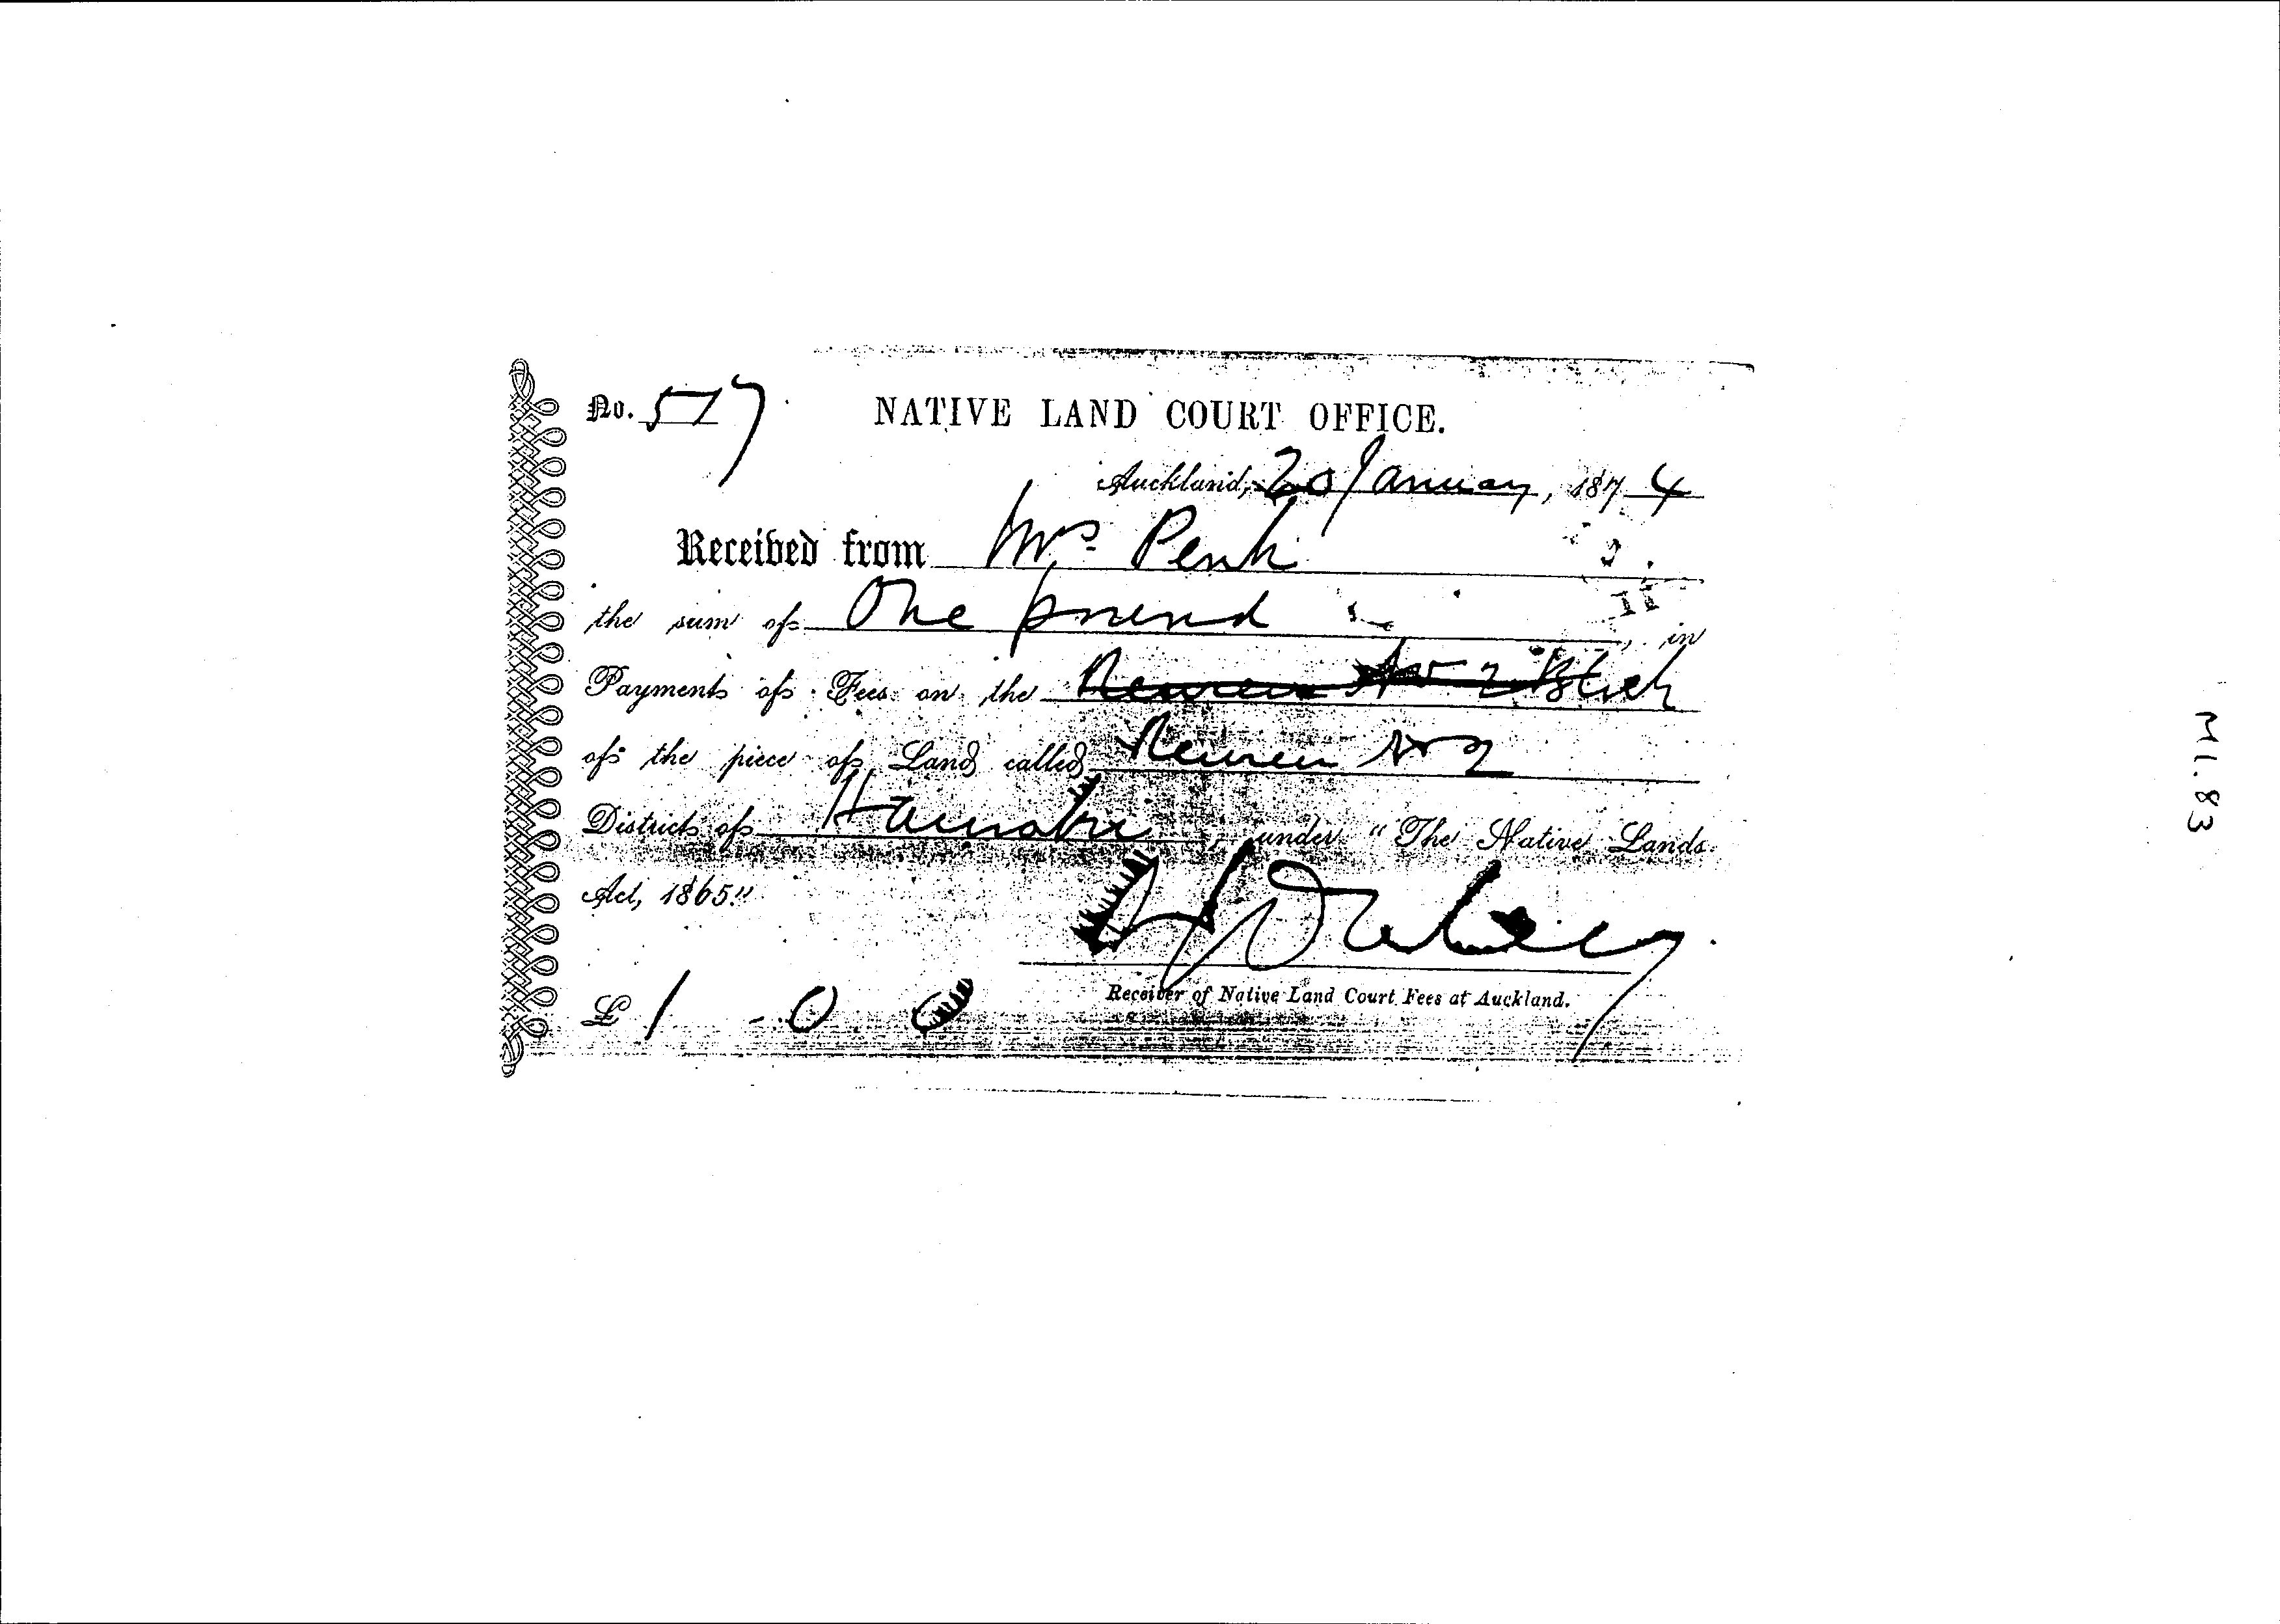 No. 577 NATIVE LAND COURT OFFICE.
Auckland, 20 January, 1874
Received from Mrs. Penk
the sum of One pound, in
Payment of Fees on the No 2 Block
of the piece of Land called No 2
District of, under "The Native Lands
Act, 1865."
£1 - 0 0
Receiver of Native Land Court Fees at Auckland.
M1.83